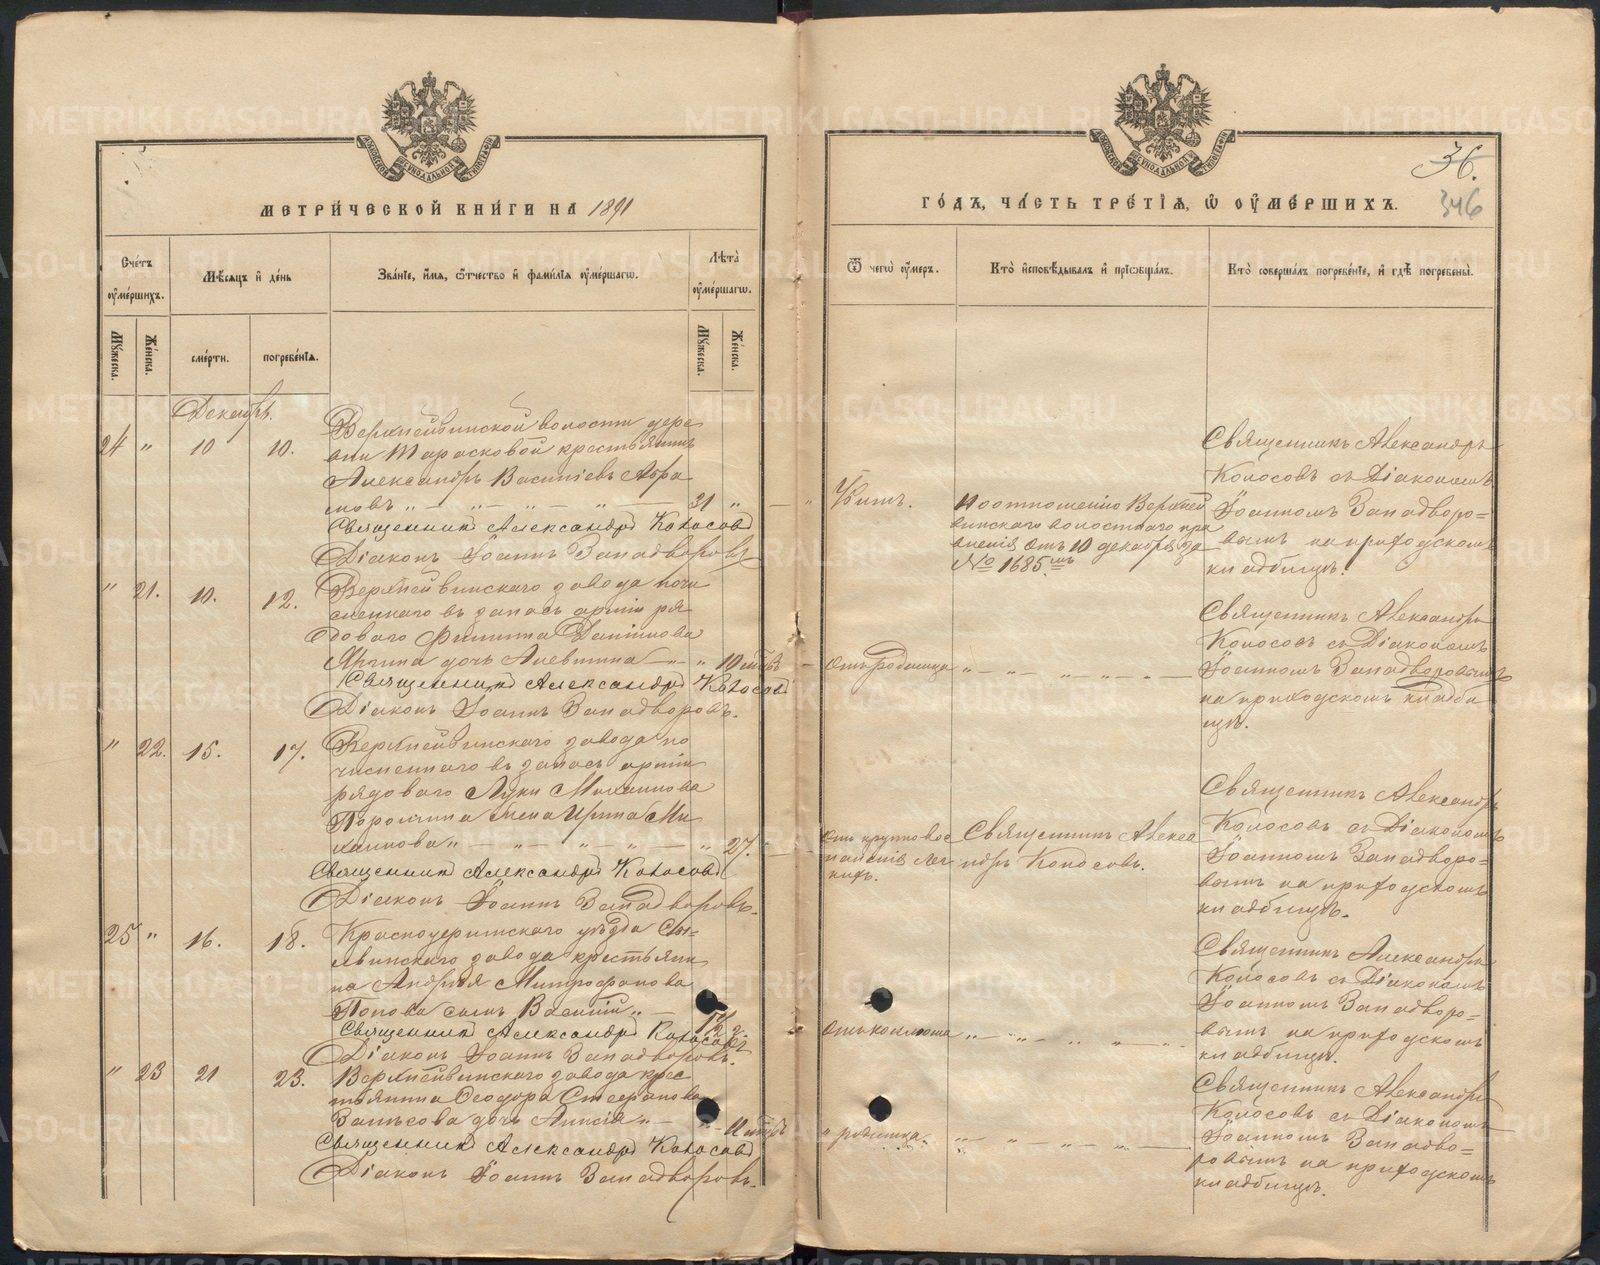 МЕТРИ́ЧЕСКОЙ КНИ́ГИ НА 1891
ГО́ДЪ, ЧА́СТЬ ТРЕ́ТІѦ, Ѡ ОУ҆МЕ́РШИХЪ.
36.
346
МОСКОВСКОЙ СѴНОДАЛЬНОЙ ТИПОГРАФІИ
МОСКОВСКОЙ СѴНОДАЛЬНОЙ ТИПОГРАФІИ
Сче́тъ оу҆ме́ршихъ.
Мѣ́сяцъ и҆ де́нь
Зва́ніе, и҆́мя, ѻ҆́тчество и҆ фами́лія оу҆ме́ршагѡ.
Лѣ́та оу҆ме́ршагѡ.
Ѿ чегѡ̀ оу҆́меръ.
Кто̀ и҆сповѣ́дывалъ и҆ прїѡбща́лъ.
Кто̀ соверша́лъ погребе́ніе, и҆ гдѣ̀ погребены̀.
Му́жеска.
Же́нска.
сме́рти.
погребе́нія.
Му́жеска.
Же́нска.
Декабрь.
24 " 10 10.
Верхнейвинской волости дере
вни Тарасковой крестьянинъ
Александръ Василіевъ Абра
мовъ 31 "
Священникъ Александръ Колосовъ
Діаконъ Іоаннъ Западворовъ
Убитъ.
По отношенію Верхней
винскаго волостнаго пра
вленія отъ 10 декабря за
№ 1685.мъ
Священникъ Александръ
Колосовъ съ Діакономъ
Іоанномъ Западворо=
вымъ на приходскомъ
кладбищѣ.
" 21. 10. 12.
Верхнейвинскаго завода почи
сленнаго въ запасъ арміи ря
доваго Филиппа Даніилова
дочь Алевтина " 10 мѣс.
Священникъ Александръ Колосовъ
Діаконъ Іоаннъ Западворовъ.
отъ родимца
Священникъ Александръ
Колосовъ съ Діакономъ
Іоанномъ Западворовымъ
на приходскомъ кладби
щѣ.
" 22. 15. 17.
Верхнейвинскаго завода по
численнаго въ запасъ арміи
рядоваго Луки Михаилова
жена Ирина Ми
хаилова " 27.
Священникъ Александръ Колосовъ
Діаконъ Іоаннъ Западворовъ.
отъ крупознос
паленія лег
кихъ.
Священникъ Алекса
ндръ Колосовъ.
Священникъ Александръ
Колосовъ съ Діакономъ
Іоанномъ Западворо=
вымъ на приходскомъ
кладбищѣ.
25 " 16. 18.
Красноуфимскаго уѣзда Сы=
лвинскаго завода крестьяни
на Андрея Митрофанова
Попова сынъ Василій "
Священникъ Александръ Колосовъ
Діаконъ Іоаннъ Западворовъ.
отъ коклюша
Священникъ Александръ
Колосовъ съ Діакономъ
Іоанномъ Западворо=
вымъ на приходскомъ
кладбищѣ.
" 23 21 23.
Верхнейвинскаго завода крес
тьянина Ѳеодора Стефанова
дочь Анисія "
Священникъ Александръ Колосовъ
Діаконъ Іоаннъ Западворовъ.
" родимца.
Священникъ Александръ
Колосовъ съ Діакономъ
Іоанномъ Западво=
ровымъ на приходскомъ
кладбищѣ.
METRIKI.GASO-URAL.RU